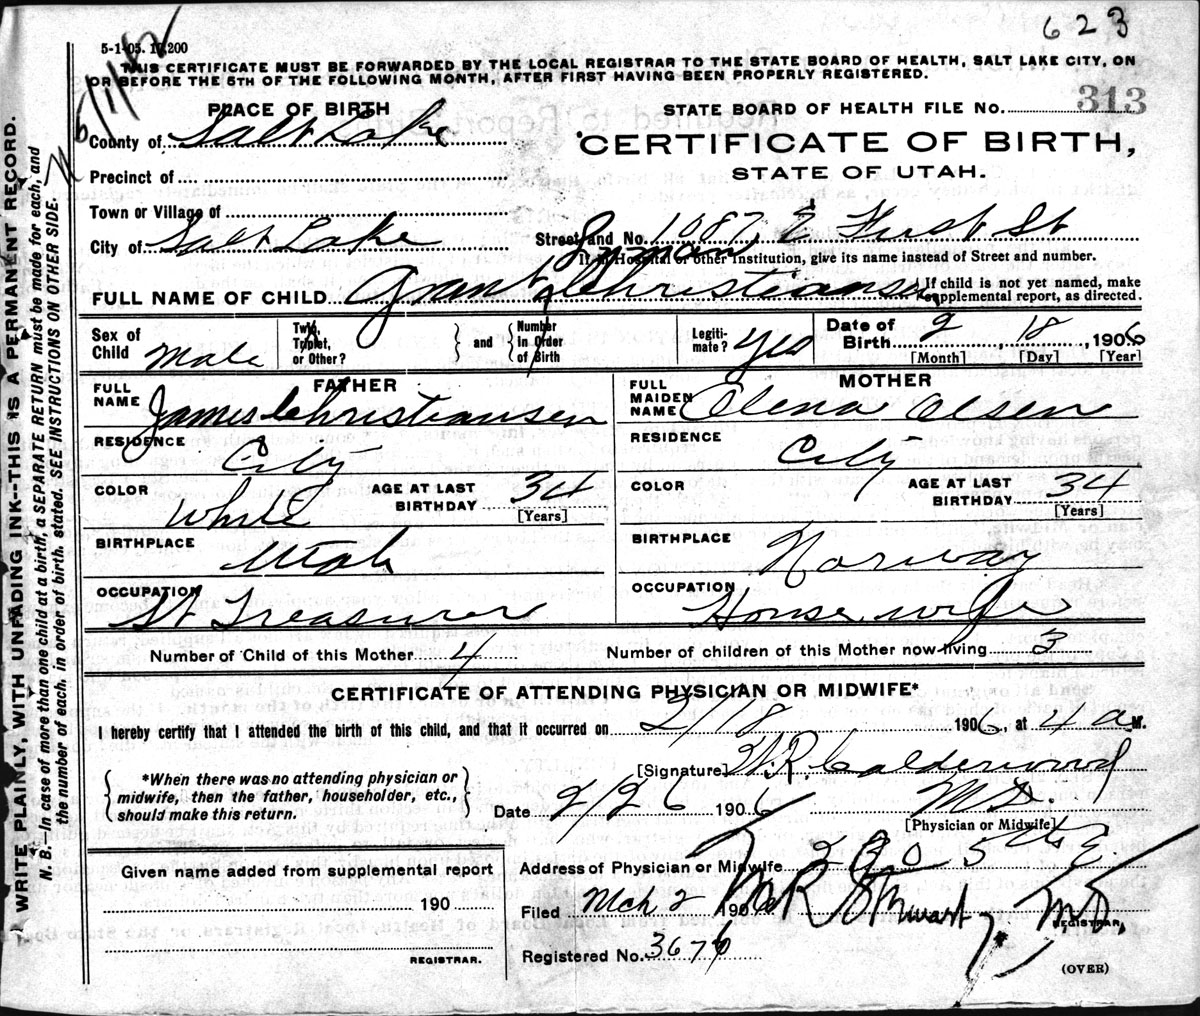 623
5-1-05. 17,200
THIS CERTIFICATE MUST BE FORWARDED BY THE LOCAL REGISTRAR TO THE STATE BOARD OF HEALTH, SALT LAKE CITY, ON
OR BEFORE THE 5TH OF THE FOLLOWING MONTH, AFTER FIRST HAVING BEEN PROPERLY REGISTERED.
PLACE OF BIRTH
STATE BOARD OF HEALTH FILE NO. 313
County of Salt Lake
CERTIFICATE OF BIRTH,
STATE OF UTAH.
Precinct of
Town or Village of
City of Salt Lake Street and No. 1087 E First St
If in Hospital or other Institution, give its name instead of Street and number.
FULL NAME OF CHILD Grant Christiansen
If child is not yet named, make
supplemental report, as directed.
Sex of Child Male
Twin, Triplet, or Other? } and { Number in Order of Birth
Legitimate? Yes
Date of Birth 2, 18, 1906
[Month] [Day] [Year]
FATHER
FULL NAME James Christiansen
RESIDENCE City
COLOR White
AGE AT LAST BIRTHDAY 34
[Years]
BIRTHPLACE Utah
OCCUPATION St Treasurer
MOTHER
FULL MAIDEN NAME Olena Olsen
RESIDENCE City
COLOR
AGE AT LAST BIRTHDAY 34
[Years]
BIRTHPLACE Norway
OCCUPATION House wife
Number of Child of this Mother 4 Number of children of this Mother now living 3
CERTIFICATE OF ATTENDING PHYSICIAN OR MIDWIFE*
I hereby certify that I attended the birth of this child, and that it occurred on 2/18 1906, at 4 a M.
*When there was no attending physician or
midwife, then the father, householder, etc.,
should make this return.
[Signature] W.R. Calderwood
Date 2/26 1906 M.D.
[Physician or Midwife]
Address of Physician or Midwife 290 5th E
Given name added from supplemental report
190
REGISTRAR.
Filed Mch 2 1906 Stewart, M.D.
REGISTRAR.
Registered No. 3676
(OVER)
WRITE PLAINLY, WITH UNFADING INK--THIS IS A PERMANENT RECORD.
N. B.—In case of more than one child at a birth, a SEPARATE RETURN must be made for each, and
the number of each, in order of birth, stated. SEE INSTRUCTIONS ON OTHER SIDE.